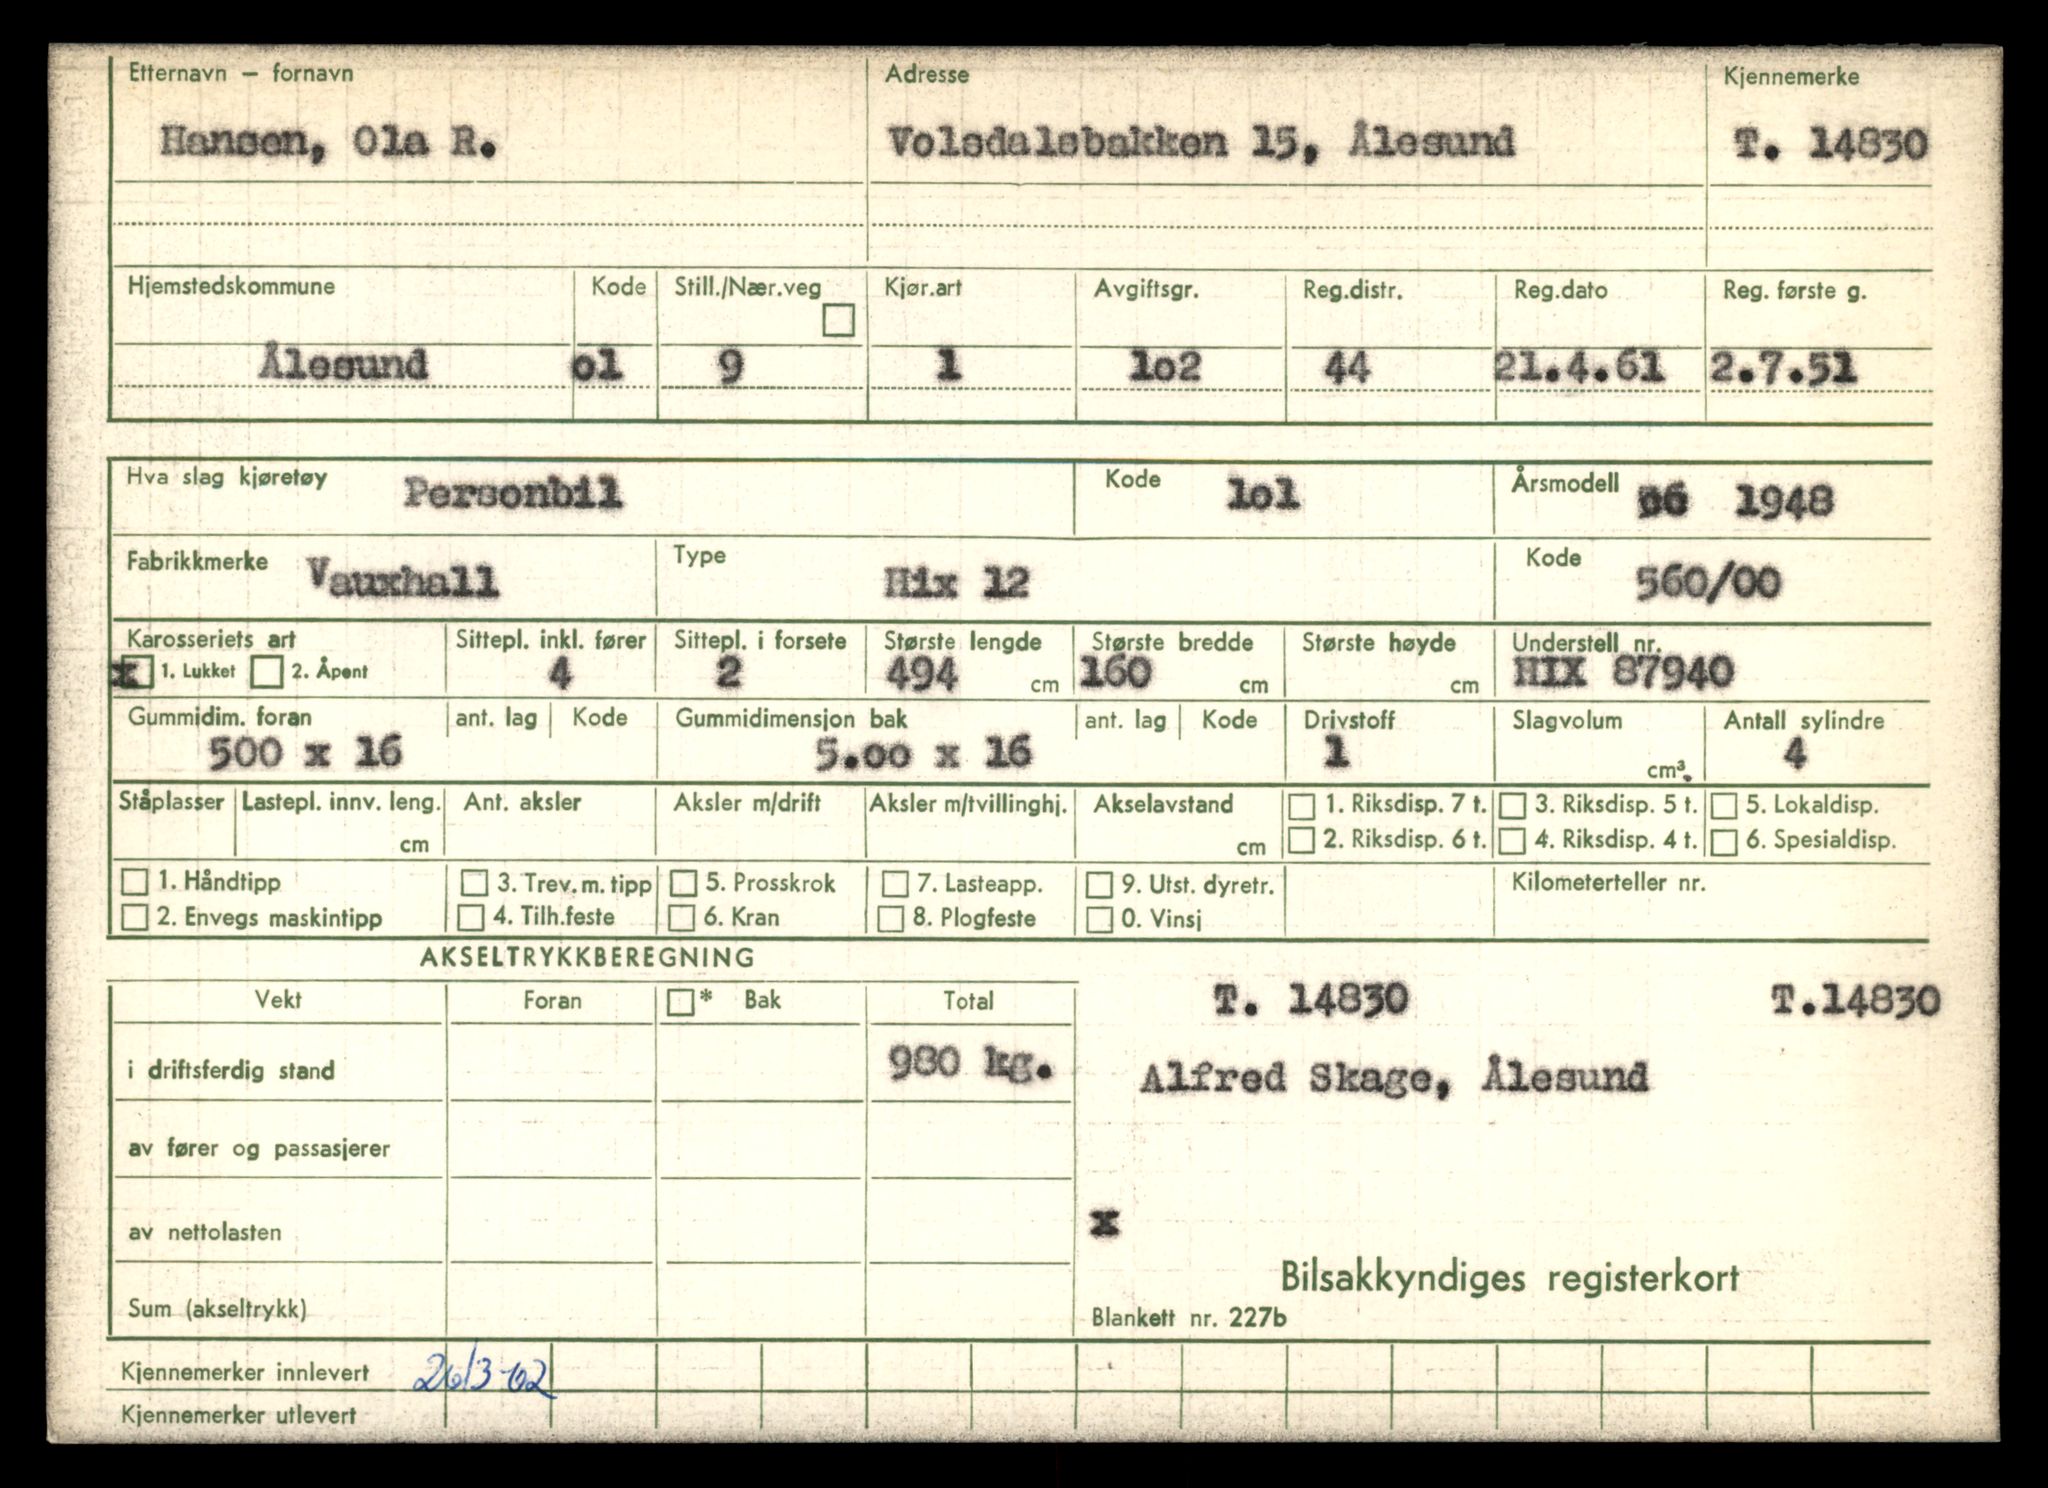 Etternavn – fornavn Adresse Kjennemerke
Hansen, Ola R. Volsdalsbakken 15, Ålesund T. 14830
Hjemstedskommune Kode Still./Nær.veg Kjør.art Avgiftsgr. Reg.distr. Reg.dato Reg. første g.
Ålesund o1 9 1 1o2 44 21.4.61 2.7.51
Hva slag kjøretøy Personbil Kode 1o1 Årsmodell 1948
Fabrikkmerke Vauxhall Type Hix 12 Kode 560/00
Karosseriets art Sittepl. inkl. fører Sittepl. i forsete Største lengde Største bredde Største høyde Understell nr.
x 1. Lukket 2. Åpent 4 2 494 cm 160 cm cm HIX 87940
Gummidim. foran ant. lag Kode Gummidimensjon bak ant. lag Kode Drivstoff Slagvolum Antall sylindre
500 x 16 5.oo x 16 1 cm³. 4
Ståplasser Lastepl. innv. leng. Ant. aksler Aksler m/drift Aksler m/tvillinghj. Akselavstand 1. Riksdisp. 7 t. 3. Riksdisp. 5 t. 5. Lokaldisp.
cm cm 2. Riksdisp. 6 t. 4. Riksdisp. 4 t. 6. Spesialdisp.
1. Håndtipp 3. Trev. m. tipp 5. Prosskrok 7. Lasteapp. 9. Utst. dyretr. Kilometerteller nr.
2. Envegs maskintipp 4. Tilh.feste 6. Kran 8. Plogfeste 0. Vinsj
AKSELTRYKKBEREGNING
Vekt Foran * Bak Total T. 14830 T.14830
i driftsferdig stand 980 kg. Alfred Skage, Ålesund
av fører og passasjerer
av nettolasten x
Bilsakkyndiges registerkort
Sum (akseltrykk) Blankett nr. 227b
Kjennemerker innlevert 26/3-62
Kjennemerker utlevert